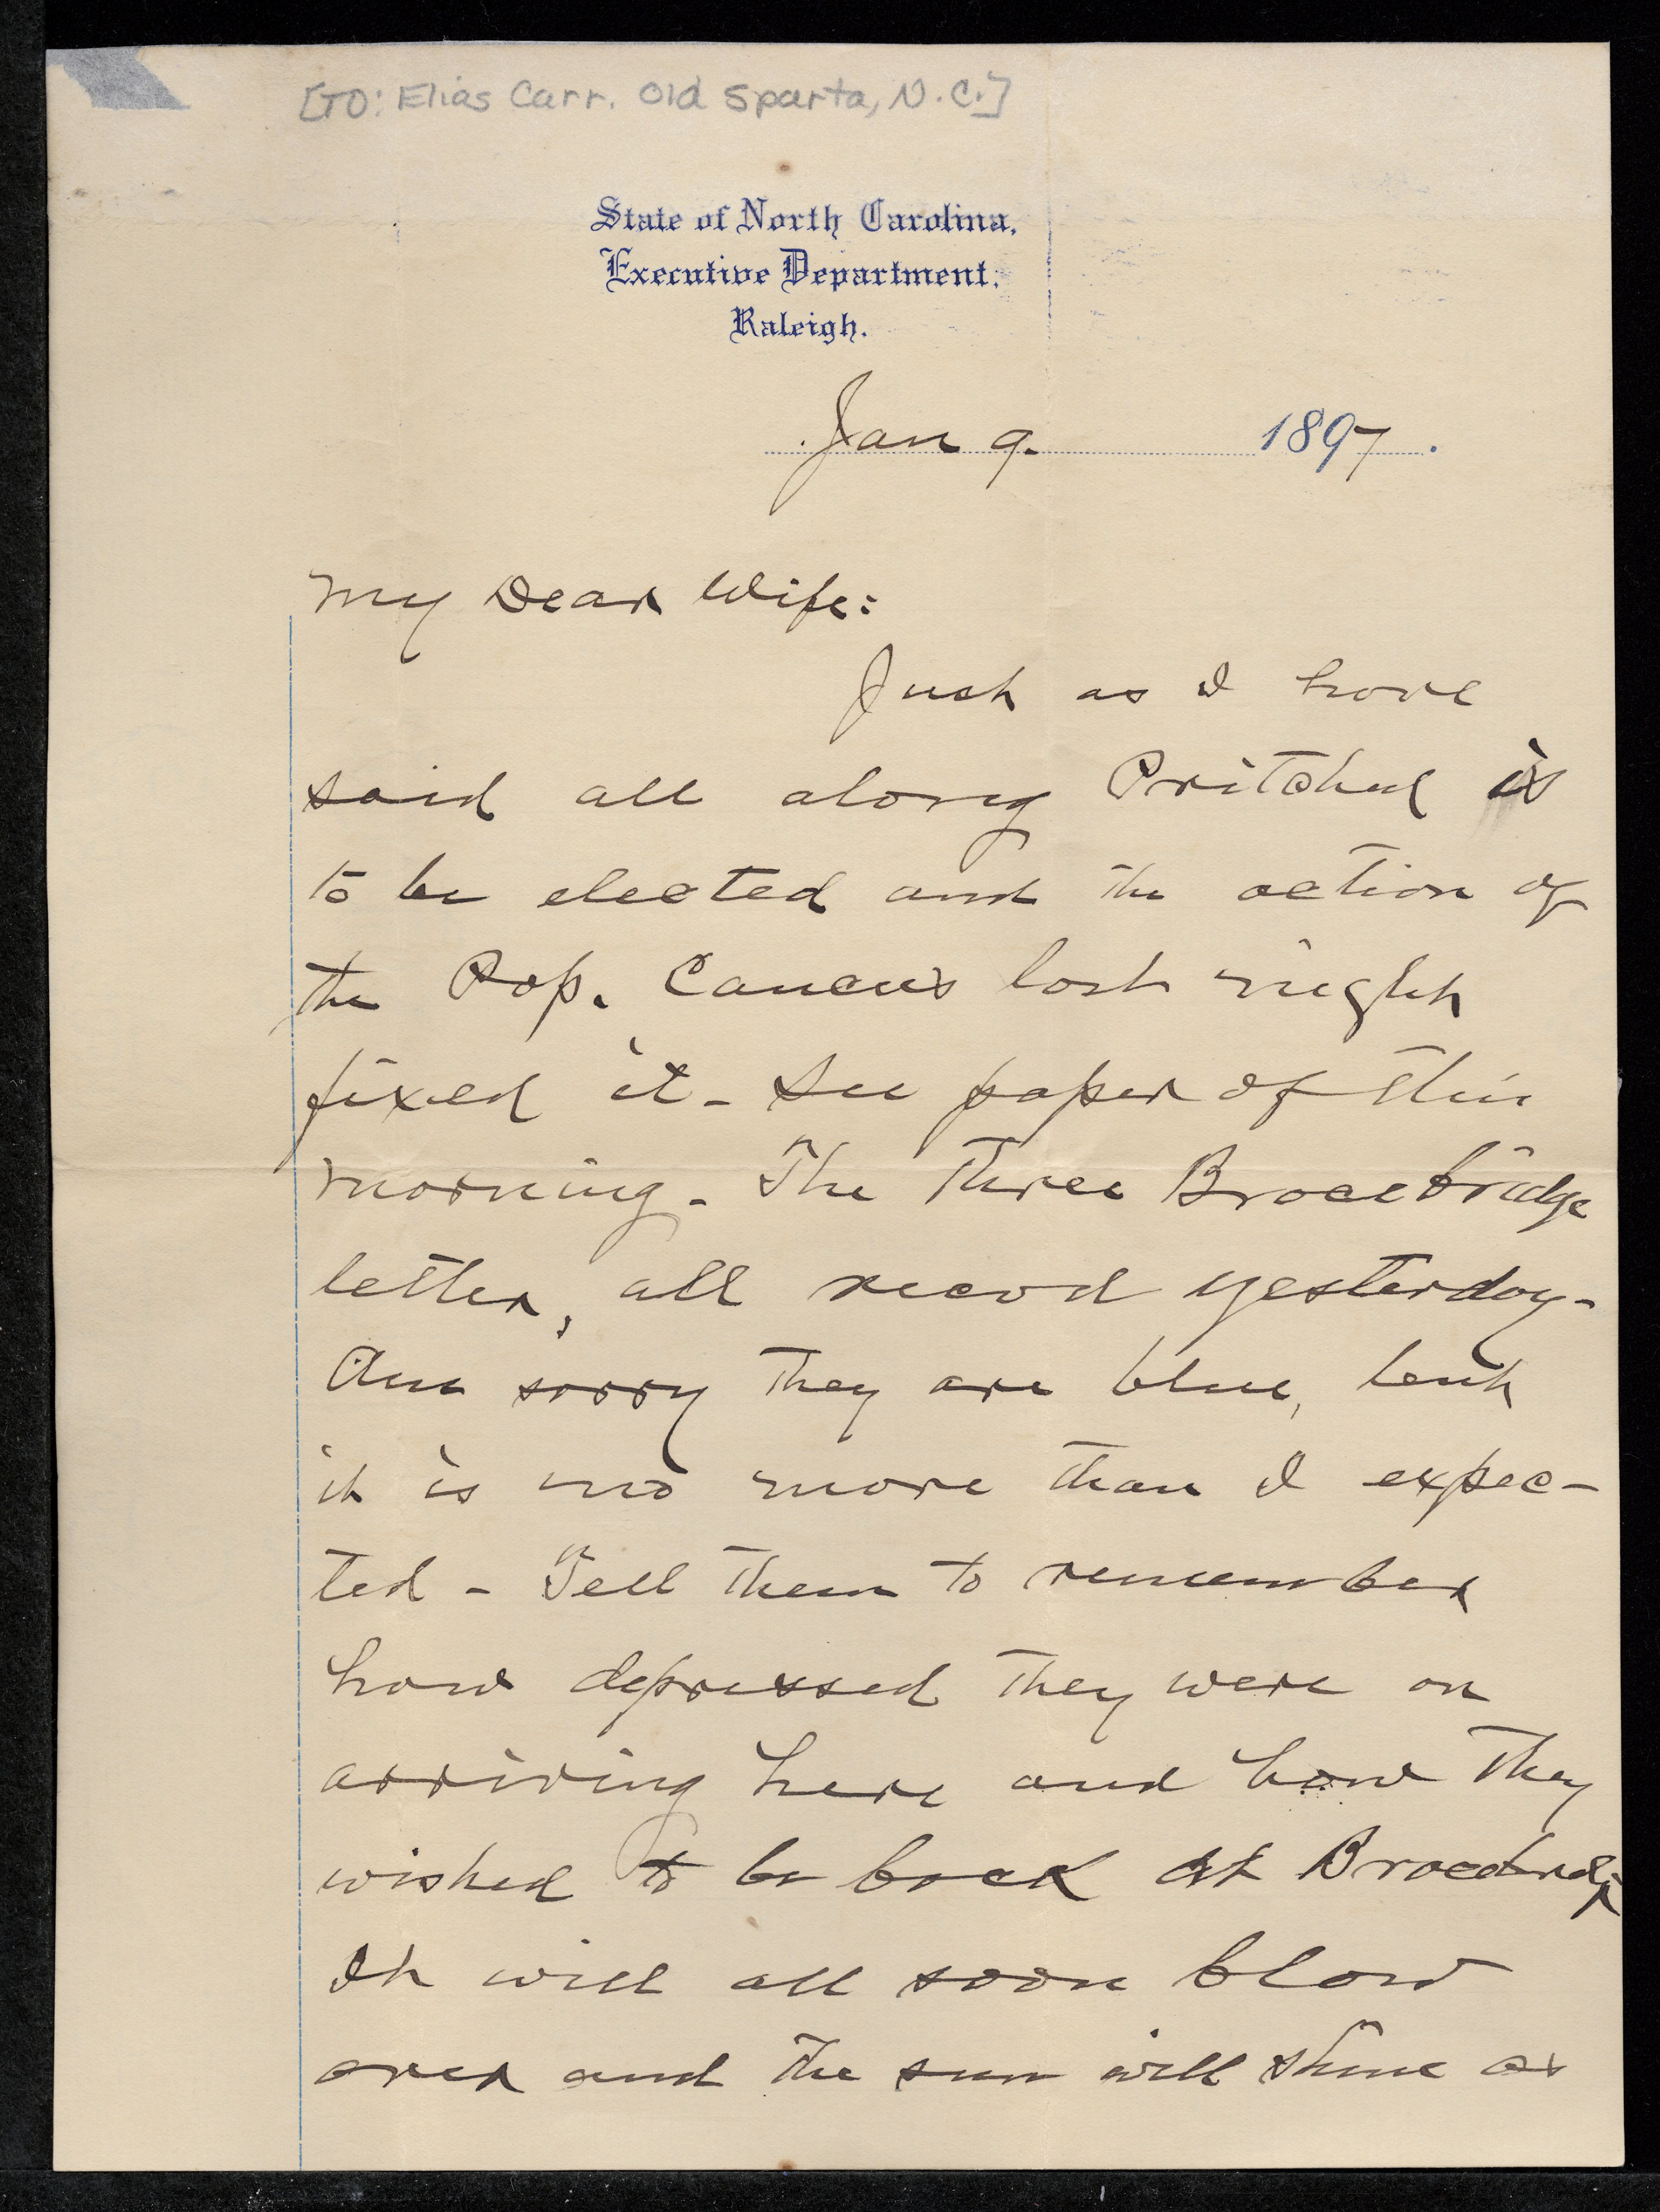 [TO: Elias Carr. Old Sparta, N.C.]
State of North Carolina,
Executive Department.
Raleigh.
Jan 9. 1897.
My Dear Wife:
Just as I have
said all along Pritchard is
to be elected and the action of
the Pop. Caucus last night
fixed it - See paper of this
morning - The Three Bracebridge
letters, all recvd yesterday -
Am sorry they are blue, but
it is no more than I expec-
ted - Tell them to remember
how depressed they were on
arriving here and how they
wished to be back at Bracebridge
It will all soon blow
over and the sun will shine as